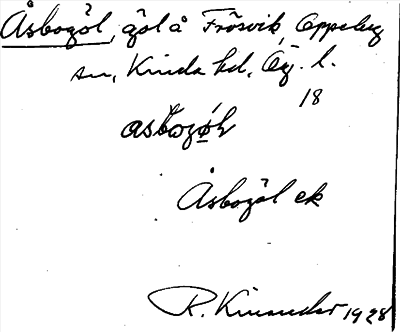 Åsbogöl, göl å Frösvik, Oppeby
sn, Kinda hd, Ög. l.
18
Åsbogöl ek
R. Kinander 1928